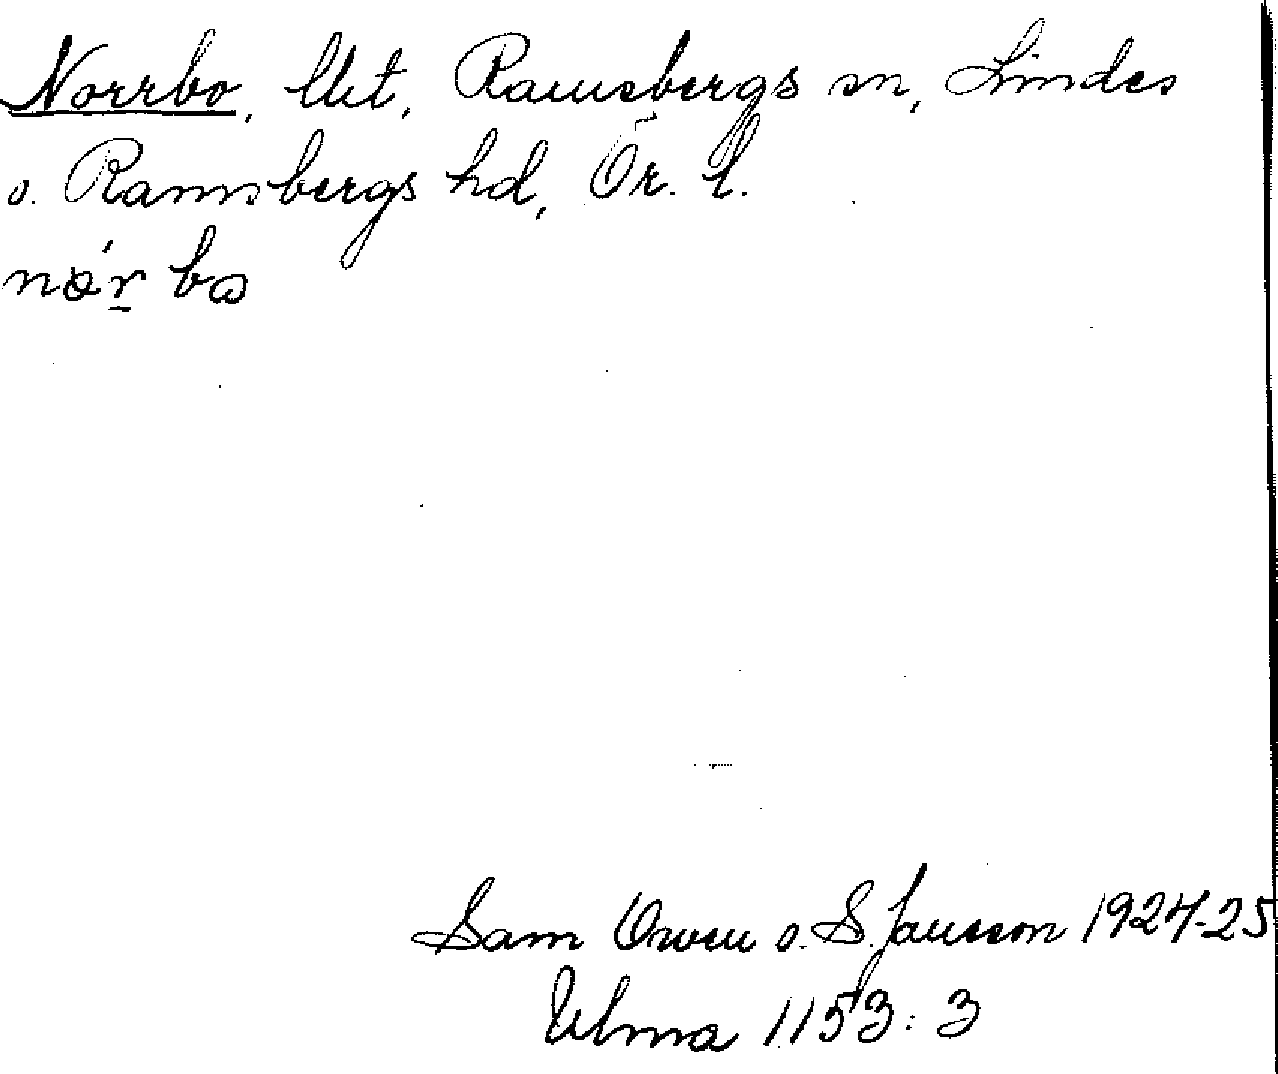 Norrbo, lht, Ramsbergs sn, Lindes
o. Ramsbergs hd, Ör. l.
Sam Owen o. S. Jansson 1924-25
Ulma 1153:3